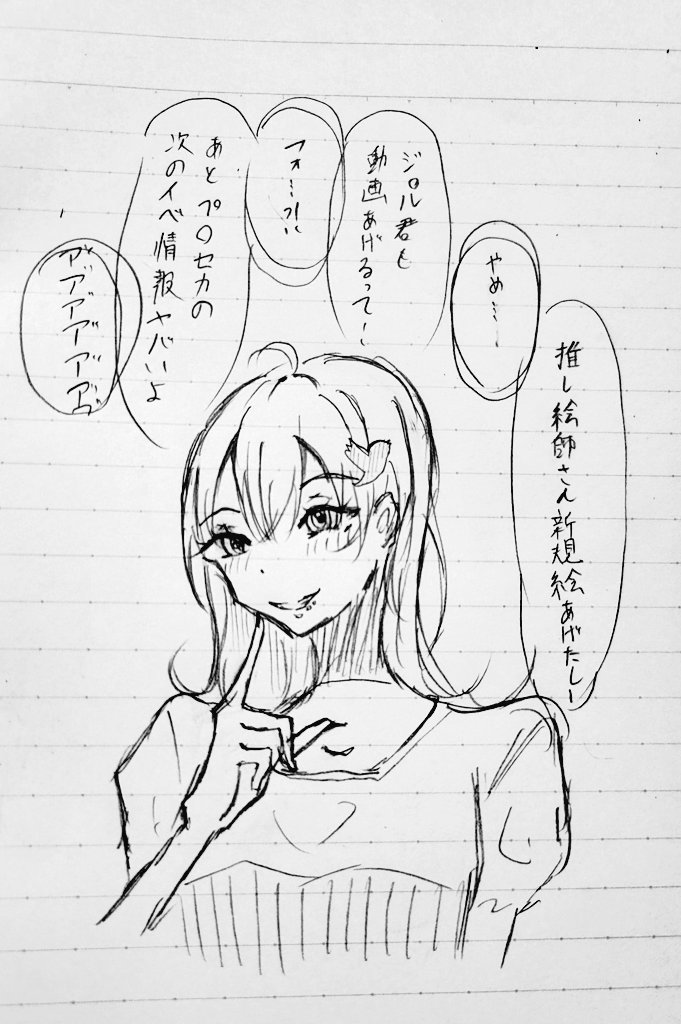 推し絵師さん新規絵あげたしー
やめ…ー
ジロル君も
動画あげるってー
フォー…?!!
あとプロセカの
次のイベ情報ヤバいよ
ア゛ア゛ア゛ア゛ア゛ア゛